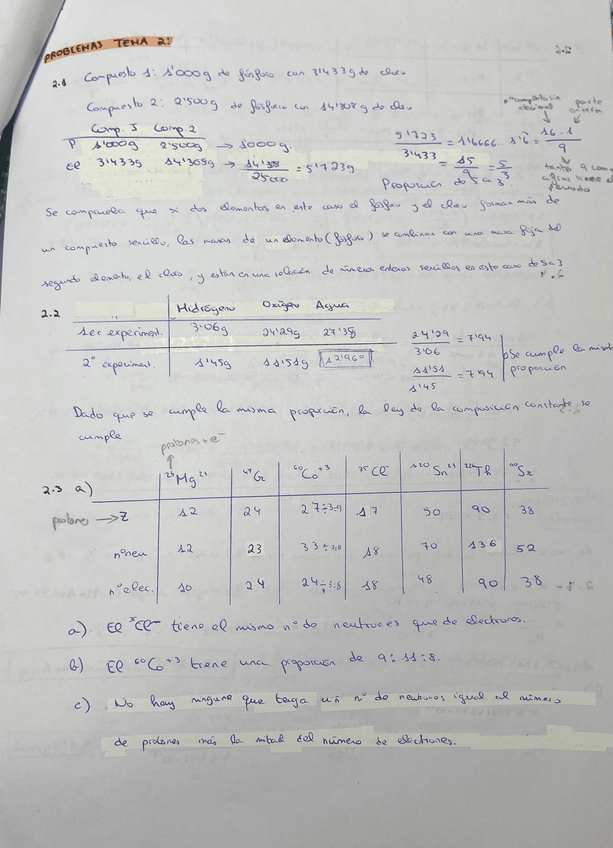 PROBLEMAS TEMA 2:
2.1 Compuesto 1: 1'000g de fósforo con 3'1433g de cloro
Compuesto 2: 2'500g de fósforo con 14'308g de cloro
Comp. 1 Comp. 2
P 1'000g 2'500g → 1000g.
Cl 3'1433g 14'308g → 14'308/25000 = 5'1723g
nº completo sin decimal parte entera
5'1723/3'1433 = 1'6666... 1'6 = 16-1/9
= 15/9 = 5/3
Proporción de 5 a 3
tanto 9 como cifras tiene el periodo
Se comprueba que si dos elementos en este caso el fósforo y el cloro forman más de
un compuesto sencillo, las masas de un elemento (fósforo) se combinan con una masa fija del
segundo elemento, el cloro, y están en una relación de números enteros sencillos en este caso de 5 a 3
2.2
Hidrógeno Oxígeno Agua
1er experiment. 3'06g 24'29g 27'35
2º experiment. 1'45g 11'51g 12'960
24'29/3'06 = 7'94
11'51/1'45 = 7'94
Se cumple la misma proporción
Dado que se cumple la misma proporción, la ley de la composición constante se
cumple
protones + e⁻
2.3 a) ²⁴Mg²⁺ ⁴⁷Cr ⁶⁰Co⁺³ ³⁵Cl⁻ ¹²⁰Sn²⁺ ²²⁶Th ⁹⁰Sr
protones → Z 12 24 27÷3=9 17 50 90 38
nº neu 12 23 33÷3=11 18 70 136 52
nº elec. 10 24 24÷3=8 18 48 90 38
a) El ³⁵Cl⁻ tiene el mismo nº de neutrones que de electrones.
b) El ⁶⁰Co⁺³ tiene una proporción de 9:11:8.
c) No hay ninguno que tenga un nº de neutrones igual al número
de protones más la mitad del número de electrones.